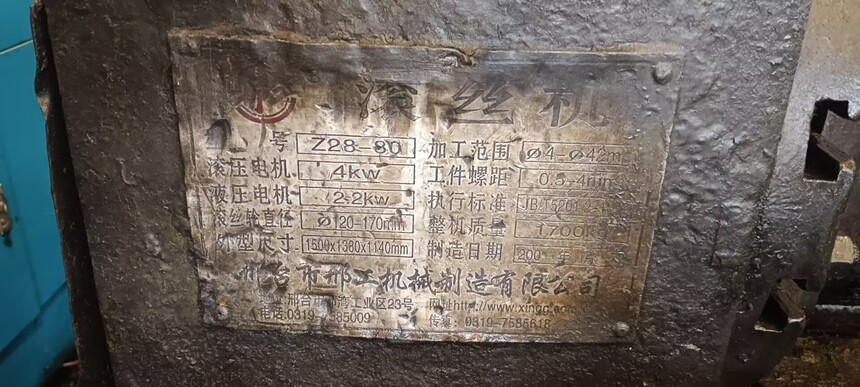 滚丝机
型号 Z28-80 加工范围 ø4-ø42m
滚压电机 4kw 工件螺距 0.5-4mm
液压电机 2.2kw 执行标准
滚丝轮直径 ø120-170mm 整机质量 1700k
外型尺寸 1500x1380x1140mm 制造日期 200 年 月
邢台市邢工机械制造有限公司
地址:邢台市 湾工业区23号 网址http://www.xingg
电话:0319- 585009 传真:0319-7585618